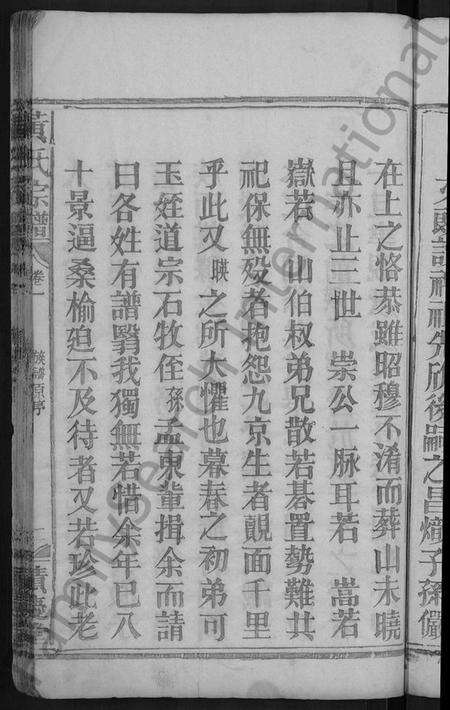 文既詔神祖先欣後嗣之昌熾子孫儼
在上之恪恭雖昭穆不淆而葬山未曉
且亦止三世　崇公一脉耳若　嵩若
嶽若　山伯叔弟兄散若碁置勢難共
祀保無殁者抱怨九京生者靦面千里
乎此又暎之所大懼也暮春之初弟可
玉姪道宗石牧侄孫孟東輩揖余而請
曰各姓有譜翳我獨無若惜余年已八
十景逼桑榆廹不及待者又若珍此老
黃氏宗譜 卷一 族譜原序
FamilySearch International